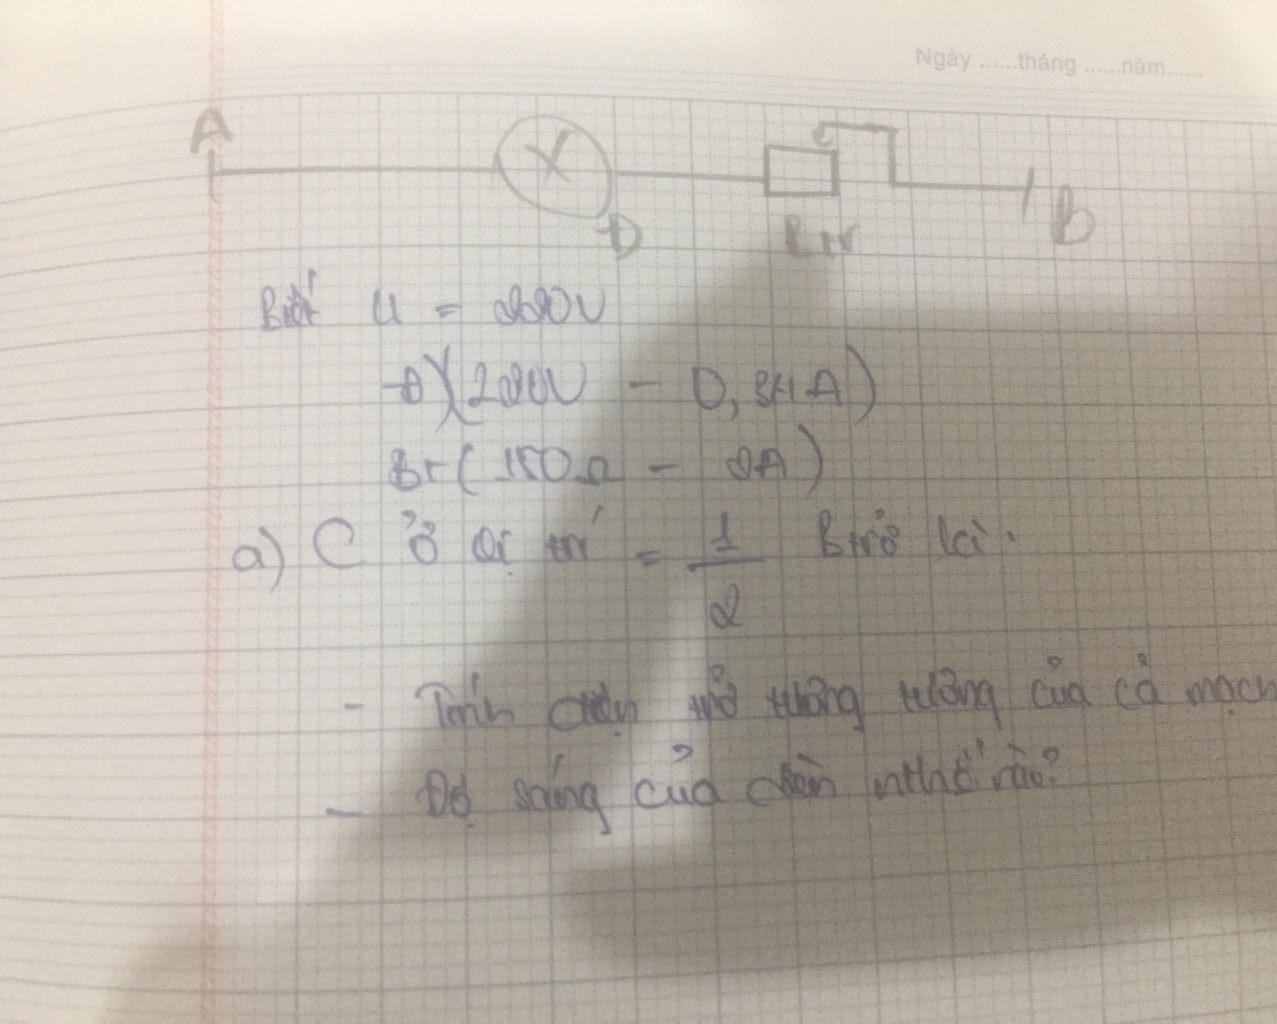 Ngày ......tháng ......năm......
A
X
Đ
B
Biết U = 220V
Đ(220V - 0,341A)
Br(150Ω - 2A)
a) C ở vị trí = 1/2 Btrở là.
- Tính điện trở tương đương của cả mạch
- Độ sáng của đèn như thế nào?